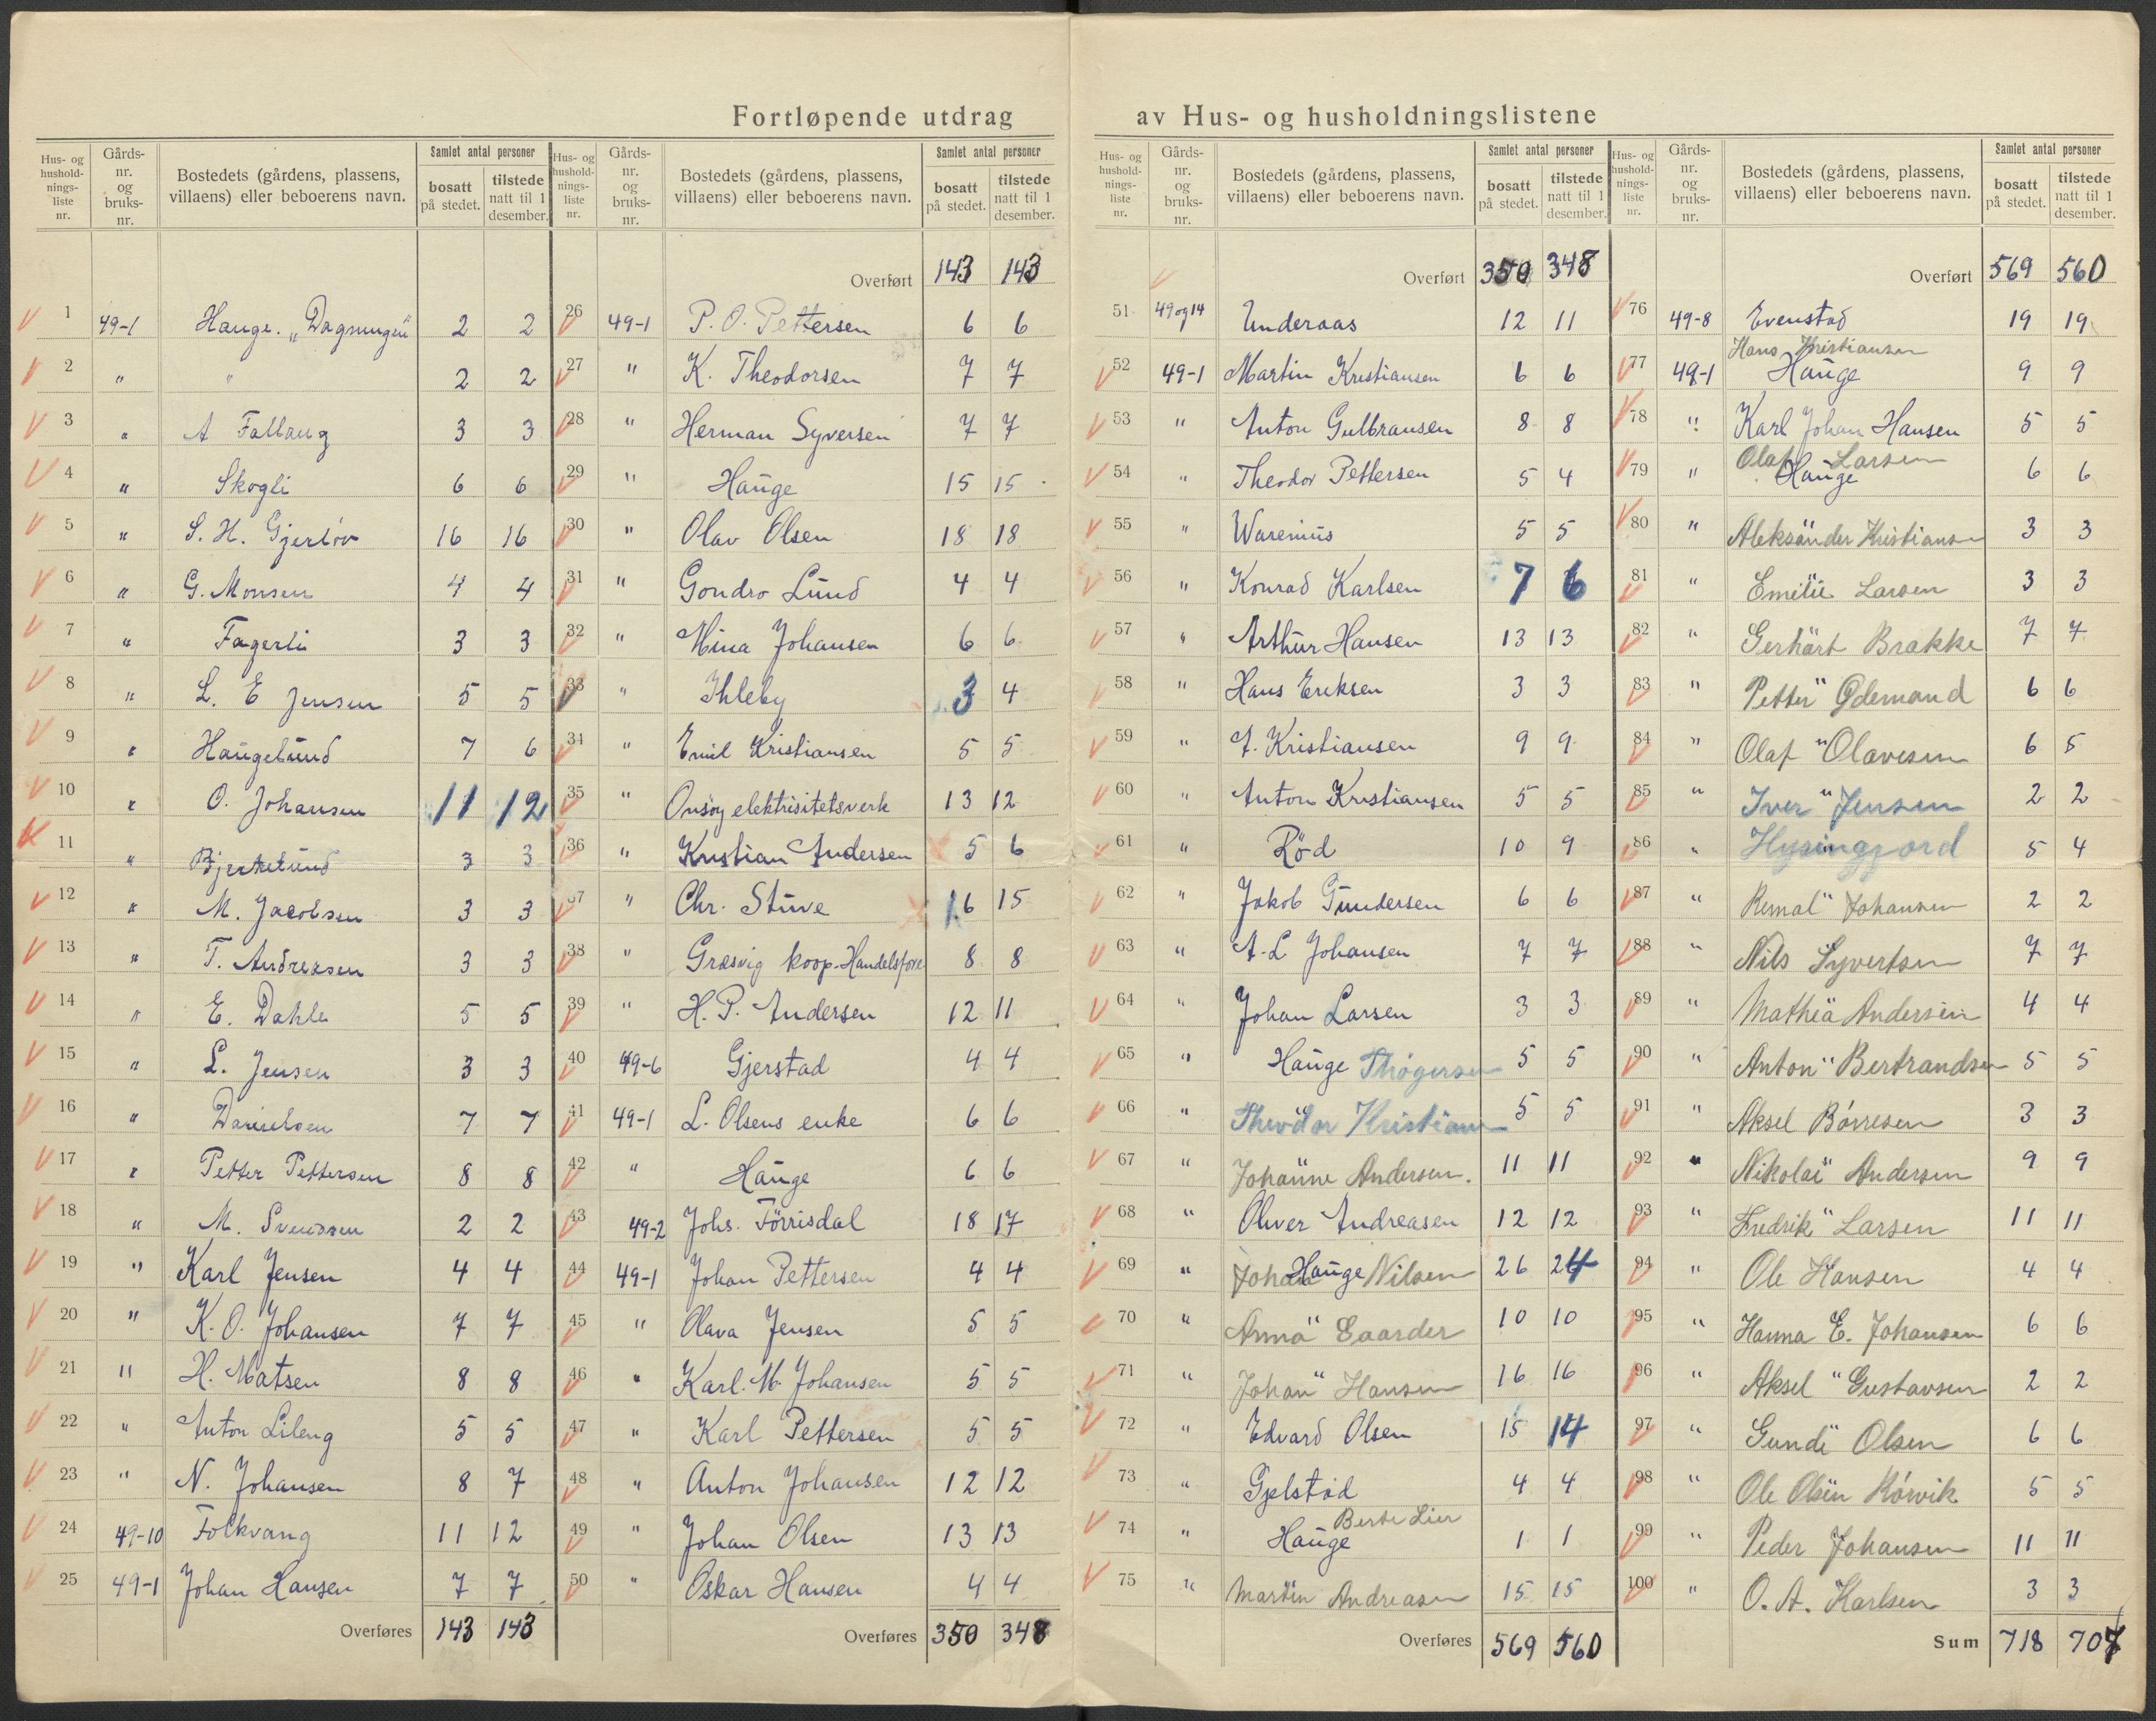 Fortløpende utdrag av Hus- og husholdningslistene
Hus- og hushold-nings-liste nr. Gårds-nr. og bruks-nr. Bostedets (gårdens, plassens, villaens) eller beboerens navn. Samlet antal personer bosatt på stedet. tilstede natt til 1 desember.
1 49-1 Hauge. „Dagningen" 2 2
2 " " 2 2
3 " A Fallang 3 3
4 " Skogli 6 6
5 " S. H. Gjerløv 16 16
6 " G. Monsen 4 4
7 " Fagerli 3 3
8 " L. E Jensen 5 5
9 " Haugelund 7 6
10 " O. Johansen 11 12
11 " Bjerkelund 3 3
12 " M. Jacobsen 3 3
13 " T. Andreasen 3 3
14 " E. Dahle 5 5
15 " L. Jensen 3 3
16 " Danielsen 7 7
17 " Petter Pettersen 8 8
18 " M. Svendsen 2 2
19 " Karl Jensen 4 4
20 " K. O. Johansen 7 7
21 " H. Matsen 8 8
22 " Anton Lileng 5 5
23 " N. Johansen 8 7
24 49-10 Folkvang 11 12
25 49-1 Johan Hansen 7 7
Overføres 143 143
Hus- og hushold-nings-liste nr. Gårds-nr. og bruks-nr. Bostedets (gårdens, plassens, villaens) eller beboerens navn. Samlet antal personer bosatt på stedet. tilstede natt til 1 desember.
Overført 143 143
26 49-1 P. O. Pettersen 6 6
27 " K. Theodorsen 7 7
28 " Herman Syversen 7 7
29 " Hauge 15 15
30 " Olav Olsen 18 18
31 " Gondro Lund 4 4
32 " Mina Johansen 6 6
33 " Ihleby 3 4
34 " Emil Kristiansen 5 5
35 " Onsøy elektrisitetsverk 13 12
36 " Kristian Andersen 5 6
37 " Chr. Stuve 16 15
38 " Græsvig koop. Handelsfore 8 8
39 " H. P. Andersen 12 11
40 49-6 Gjerstad 4 4
41 49-1 L. Olsens enke 6 6
42 " Hauge 6 6
43 49-2 Johs. Törrisdal 18 17
44 49-1 Johan Pettersen 4 4
45 " Olava Jensen 5 5
46 " Karl. M. Johansen 5 5
47 " Karl Pettersen 5 5
48 " Anton Johansen 12 12
49 " Johan Olsen 13 13
50 " Oskar Hansen 4 4
Overføres 350 348
Hus- og hushold-nings-liste nr. Gårds-nr. og bruks-nr. Bostedets (gårdens, plassens, villaens) eller beboerens navn. Samlet antal personer bosatt på stedet. tilstede natt til 1 desember.
Overført 350 348
51 49 og 14 Underaas 12 11
52 49-1 Martin Kristiansen 6 6
53 " Anton Gulbransen 8 8
54 " Theodor Pettersen 5 4
55 " Warenius 5 5
56 " Konrad Karlsen 7 6
57 " Arthur Hansen 13 13
58 " Hans Eriksen 3 3
59 " A. Kristiansen 9 9
60 " Anton Kristiansen 5 5
61 " Rød 10 9
62 " Jakob Gundersen 6 6
63 " A. L Johansen 7 7
64 " Johan Larsen 3 3
65 " Hauge Thøgersen 5 5
66 " Theodor Kristians 5 5
67 " Johanne Andersen. 11 11
68 " Oliver Andreasen 12 12
69 " Johan Hauge Nilsen 26 24
70 " Anna " Gaarder 10 10
71 " Johan " Hansen 16 16
72 " Edvard Olsen 15 14
73 " Gjelstad 4 4
74 " Hauge Berte Lier 1 1
75 " Martin Andreasen 15 15
Overføres 569 560
Hus- og hushold-nings-liste nr. Gårds-nr. og bruks-nr. Bostedets (gårdens, plassens, villaens) eller beboerens navn. Samlet antal personer bosatt på stedet. tilstede natt til 1 desember.
Overført 569 560
76 49-8 Evenstad 19 19
Hans Kristiansen
77 49-1 Hauge 9 9
78 " Karl Johan Hansen 5 5
Olaf Larsen
79 " Hauge 6 6
80 " Aleksander Kristiansen 3 3
81 " Emilie Larsen 3 3
82 " Gerhart Brakke 7 7
83 " Petter " Ødemand 6 6
84 " Olaf " Olavesen 6 5
85 " Iver " Jensen 2 2
86 " Hysingjord 5 4
87 " Remal " Johansen 2 2
88 " Nils Syvertsen 7 7
89 " Mathea Andersen 4 4
90 " Anton " Bertrandsen 5 5
91 " Aksel Børresen 3 3
92 " Nikolai " Andersen 9 9
93 " Fredrik " Larsen 11 11
94 " Ole Hansen 4 4
95 " Hanna E. Johansen 6 6
96 " Aksel " Gustavsen 2 2
97 " Gundi Olsen 6 6
98 " Ole Olsen Rørvik 5 5
99 " Peder Johansen 11 11
100 " O. A. Karlsen 3 3
Sum 718 707